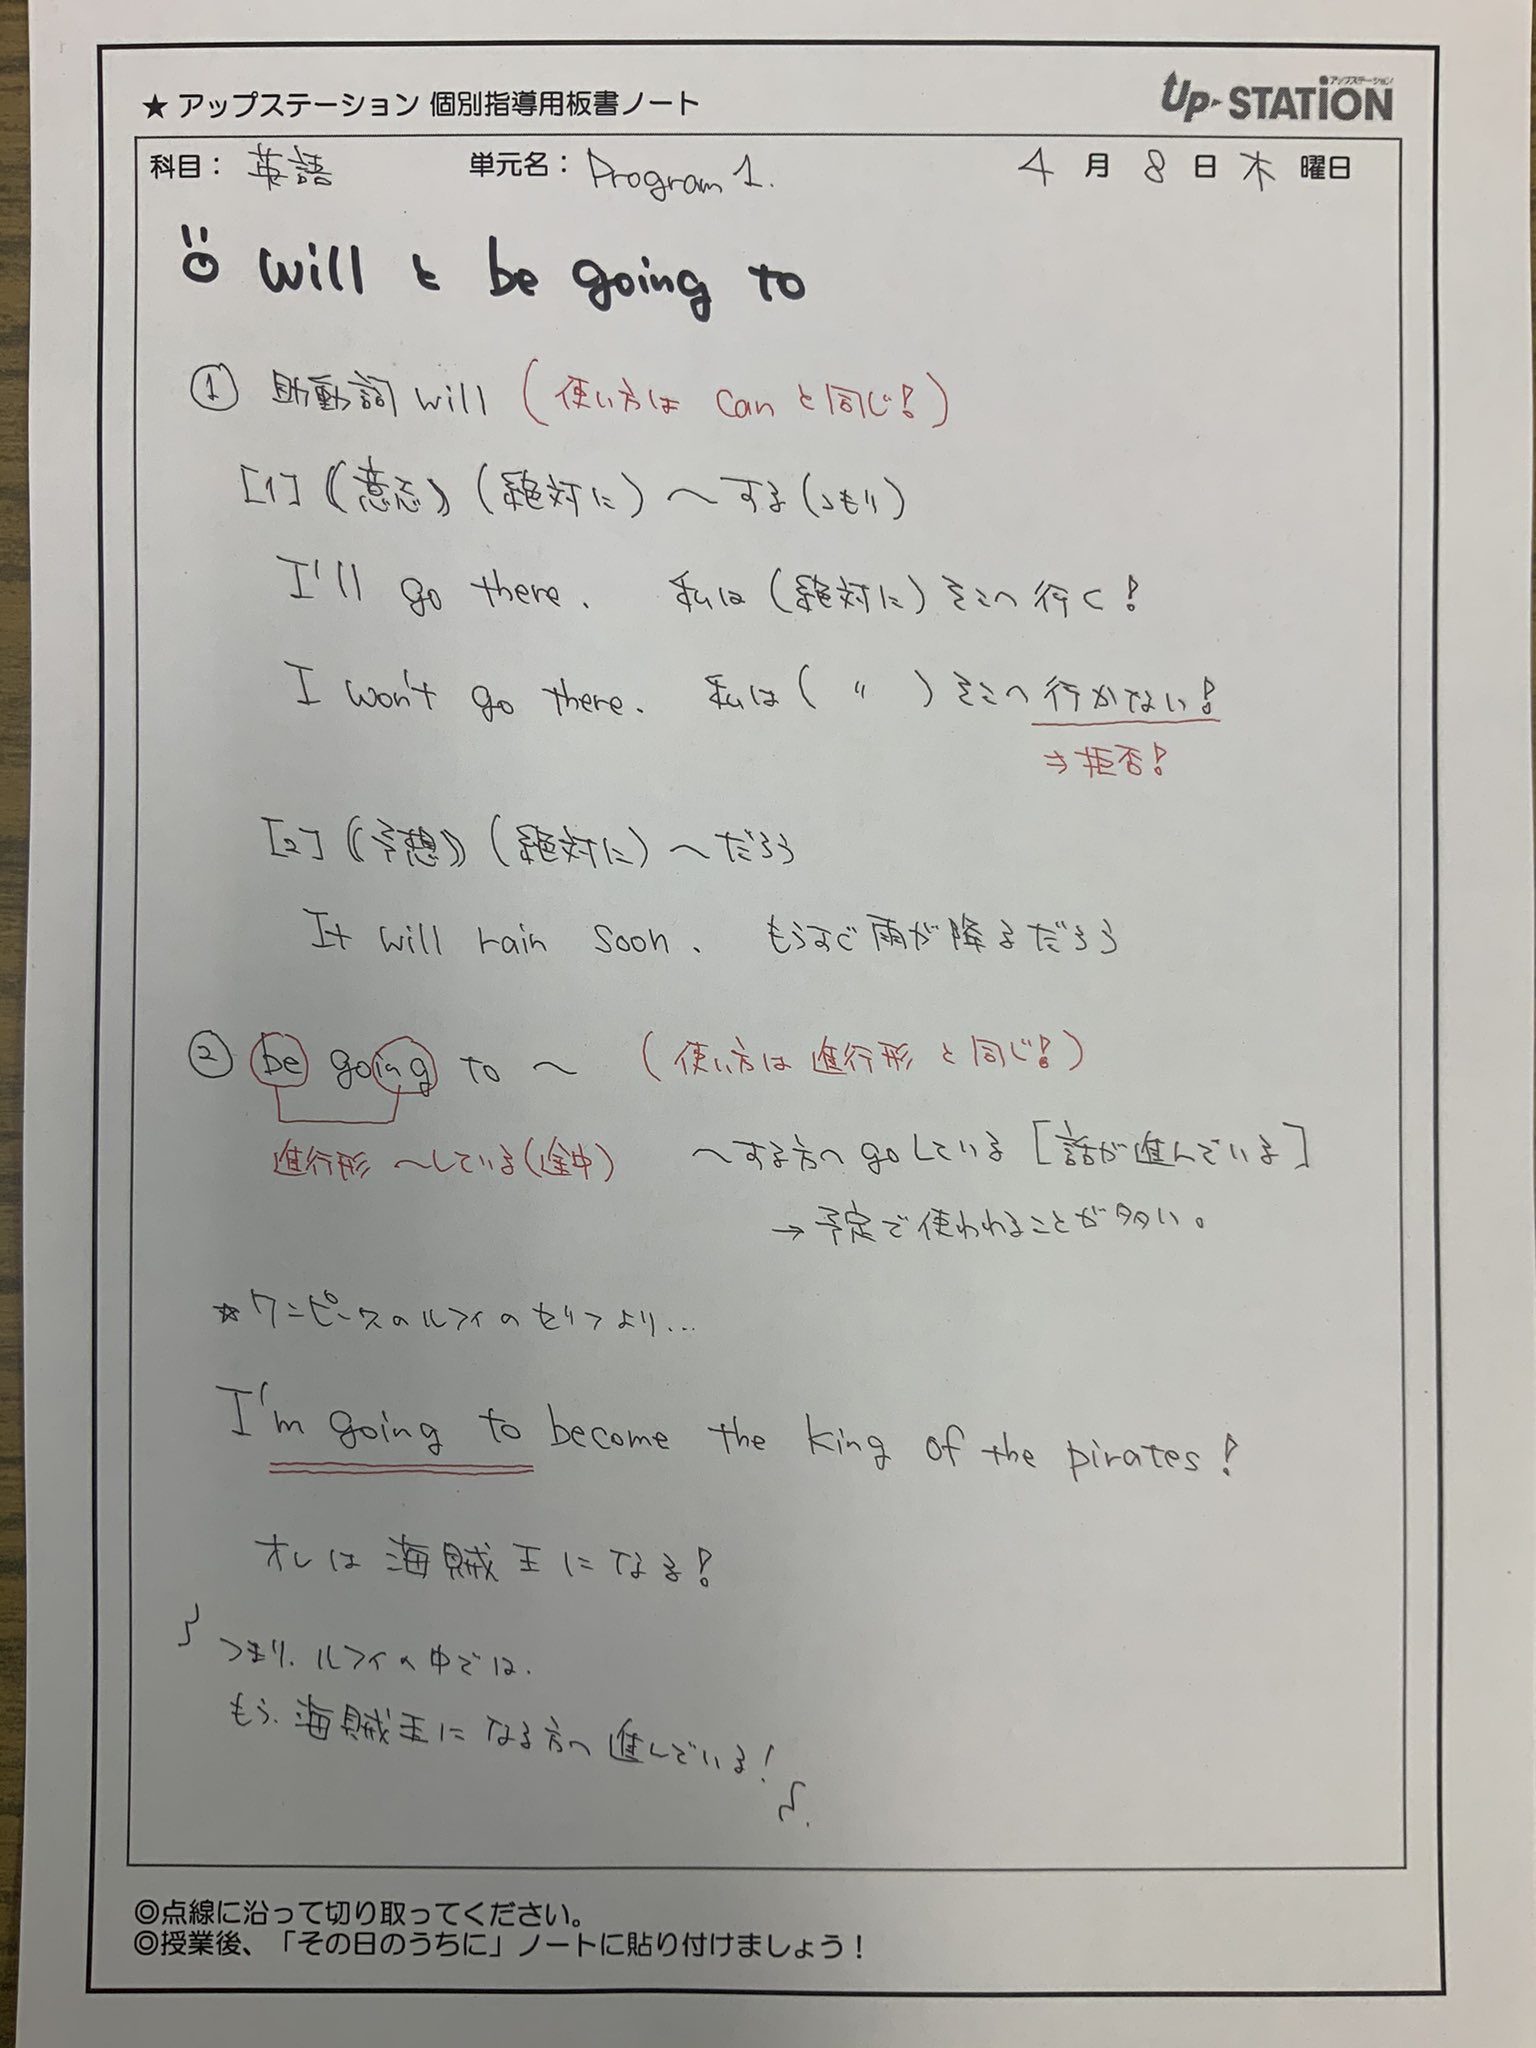 ★ アップステーション 個別指導用板書ノート
アップステーション
UP-STATION
科目： 英語 単元名： Program 1. 4 月 8 日 木 曜日
will と be going to
① 助動詞 will (使い方は can と同じ!)
[1] 《意志》 (絶対に) 〜する(つもり)
I'll go there. 私は (絶対に) そこへ 行く!
I won't go there. 私は ( 〃 ) そこへ 行かない!
⇒ 拒否!
[2] 《予想》 (絶対に) 〜だろう
It will rain soon. もうすぐ 雨が 降るだろう
② be going to 〜 (使い方は 進行形 と同じ!)
進行形 〜している(途中) 〜する方へ go している [話が進んでいる]
→ 予定で使われることが多い。
☆ワンピースのルフィのセリフより...
I'm going to become the king of the pirates!
オレは 海賊王になる!
つまり、ルフィの中では、
もう、海賊王になる方へ 進んでいる!
◎点線に沿って切り取ってください。
◎授業後、「その日のうちに」ノートに貼り付けましょう！